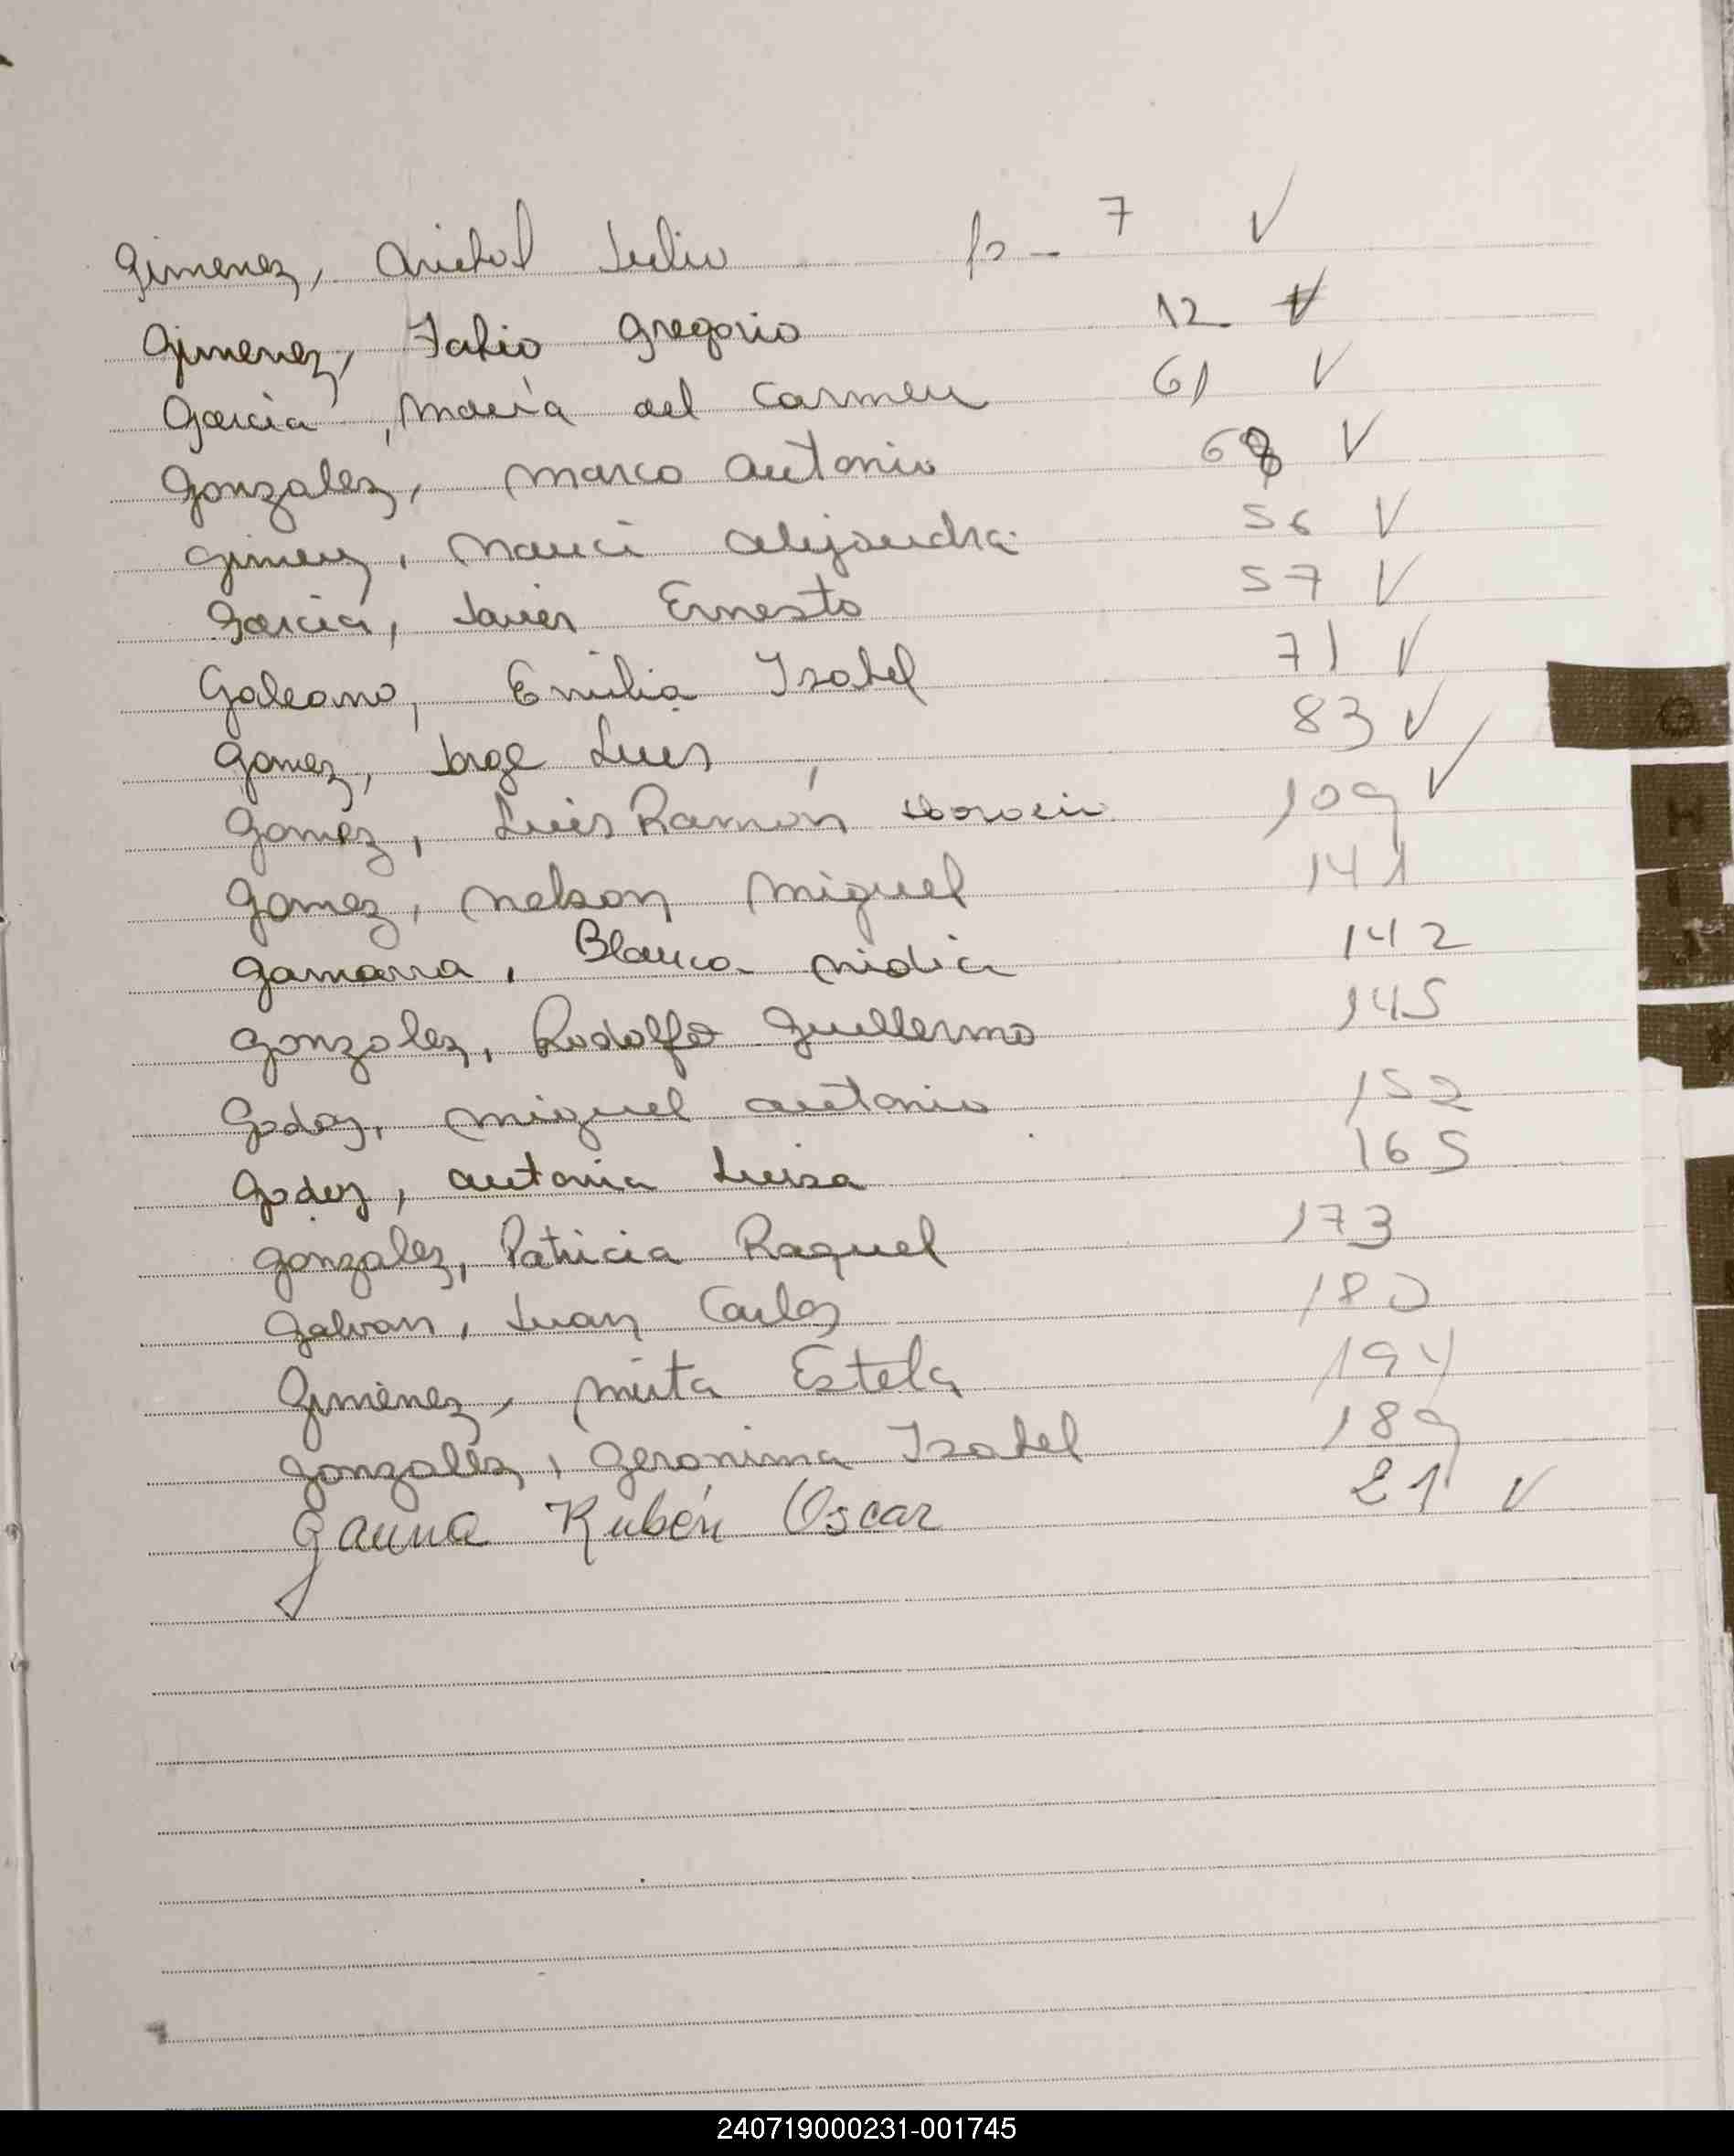 Gimenez, Julio fs - 7 ✓
Gimenez, Fabio Gregorio 12 ✓
Garcia, Maria del Carmen 61 ✓
Gonzalez, Marco Antonio 68 ✓
Gimenez, Alejandra 56 ✓
Garcia, Javier Ernesto 57 ✓
Galeano, Emilia Isabel 71 ✓
Gomez, Jorge Luis 83 ✓
Gomez, Luis Ramón 109 ✓
Gomez, Nelson Miguel 141
Gamarra, Blanca Nidia 142
Gonzalez, Rodolfo Guillermo 145
Godoy, Miguel Antonio 152
Godoy, Antonia Luisa 165
Gonzalez, Patricia Raquel 173
Galvan, Juan Carlos 180
Gimenez, Mirta Estela 194
Gonzalez, Geronima Isabel 189
Gauna Rubén Oscar 21 ✓
G
H
I
J
240719000231-001745